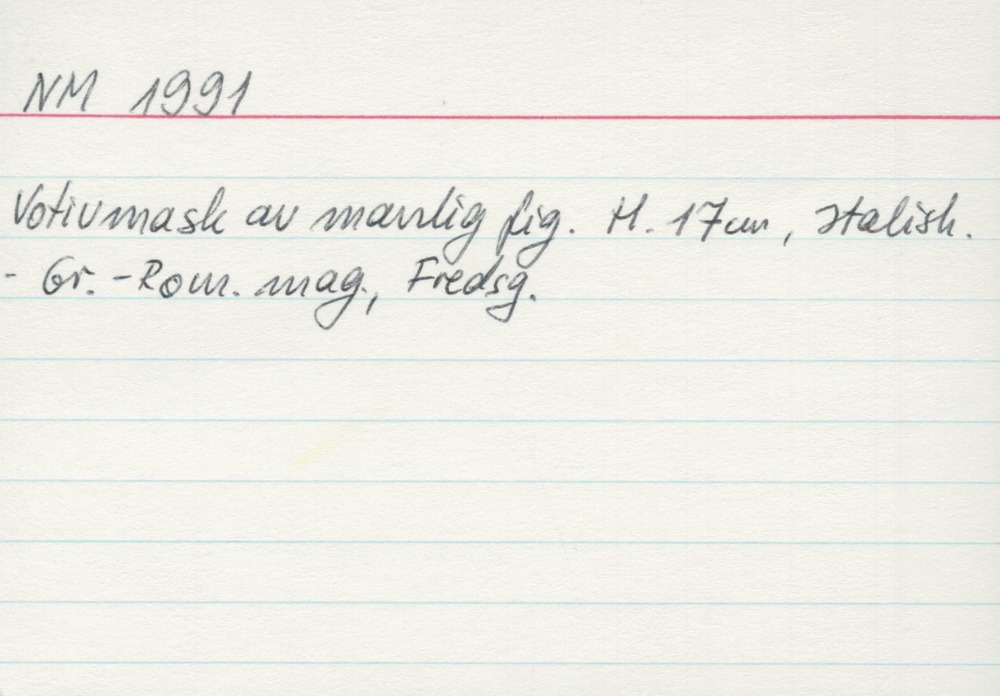 NM 1991
Votivmask av manlig fig. H. 17cm, Italisk.
- Gr. - Rom. mag., Fredsg.